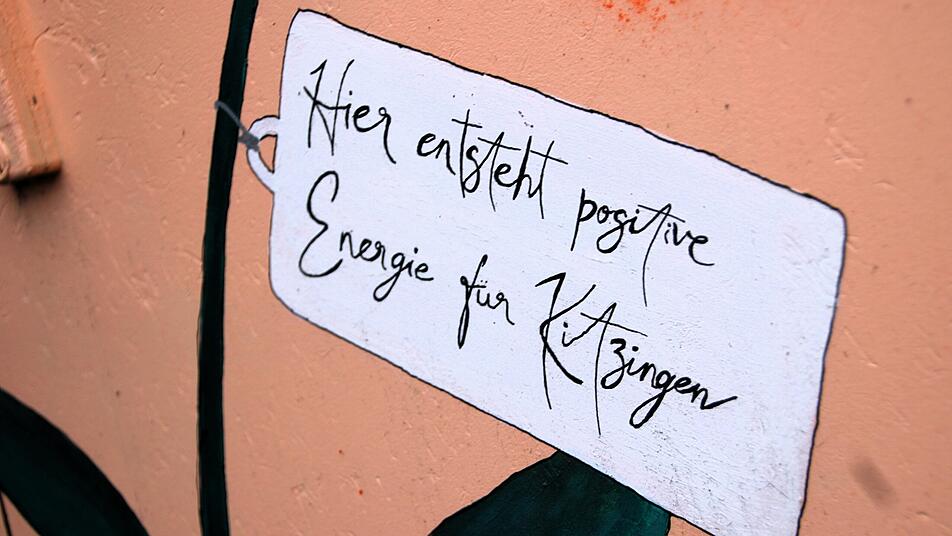 Hier entsteht positive
Energie für Kitzingen